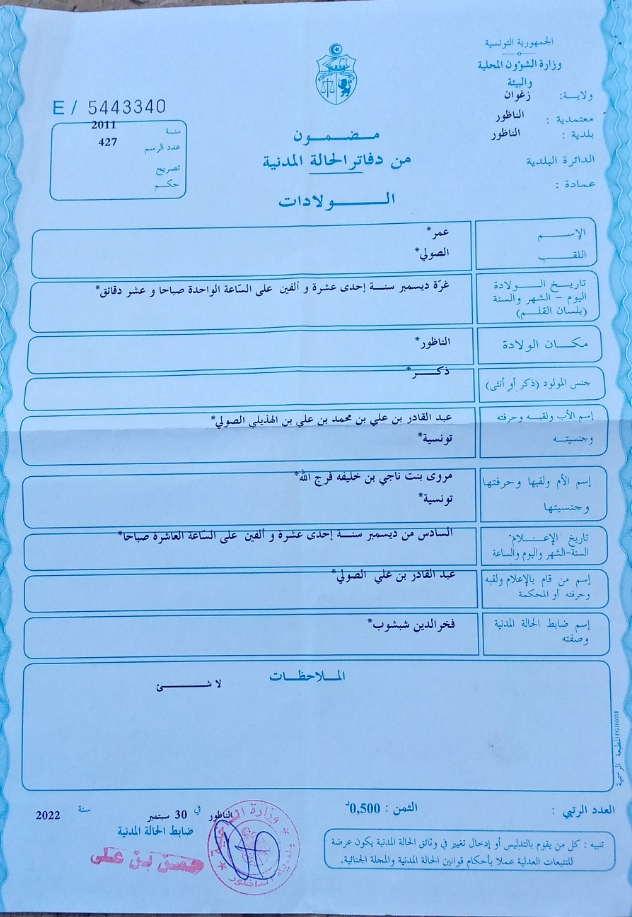 الجمهورية التونسية
وزارة الشؤون المحلية
والبيئة
ولاية: زغوان
معتمدية : الناظور
بلدية : الناظور
الدائرة البلدية
عمادة :
E / 5443340
سنة 2011
عدد الرسم 427
تصريح
حكم
مضمون
من دفاتر الحالة المدنية
الولادات
الإسم عمر*
اللقب الصولي*
تاريخ الولادة غرّة ديسمبر سنة إحدى عشرة و ألفين على السّاعة الواحدة صباحا و عشر دقائق*
اليوم - الشهر والسنة
(بلسان القلم)
مكان الولادة الناظور*
جنس المولود (ذكر أو أنثى) ذكر*
إسم الأب ولقبه وحرفته عبد القادر بن علي بن محمد بن علي بن الهذيلي الصولي*
وجنسيته تونسية*
إسم الأم ولقبها وحرفتها مروى بنت ناجي بن خليفه فرج الله*
وجنسيتها تونسية*
تاريخ الإعلام السادس من ديسمبر سنة إحدى عشرة و ألفين على السّاعة العاشرة صباحا*
السنة-الشهر واليوم والساعة
إسم من قام بالإعلام ولقبه عبد القادر بن علي الصولي*
وحرفته أو المحكمة
إسم ضابط الحالة المدنية فخرالدين شبشوب*
وصفته
الملاحظات
لا شئ
المطبعة الرسمية
العدد الرتبي :
الثمن : 0,500د
الناظور في 30 سبتمبر سنة 2022
ضابط الحالة المدنية
حسن بن علي
تنبيه : كل من يقوم بالتدليس أو إدخال تغيير في وثائق الحالة المدنية يكون عرضة
للتتبعات العدلية عملا بأحكام قوانين الحالة المدنية والمجلة الجنائية.